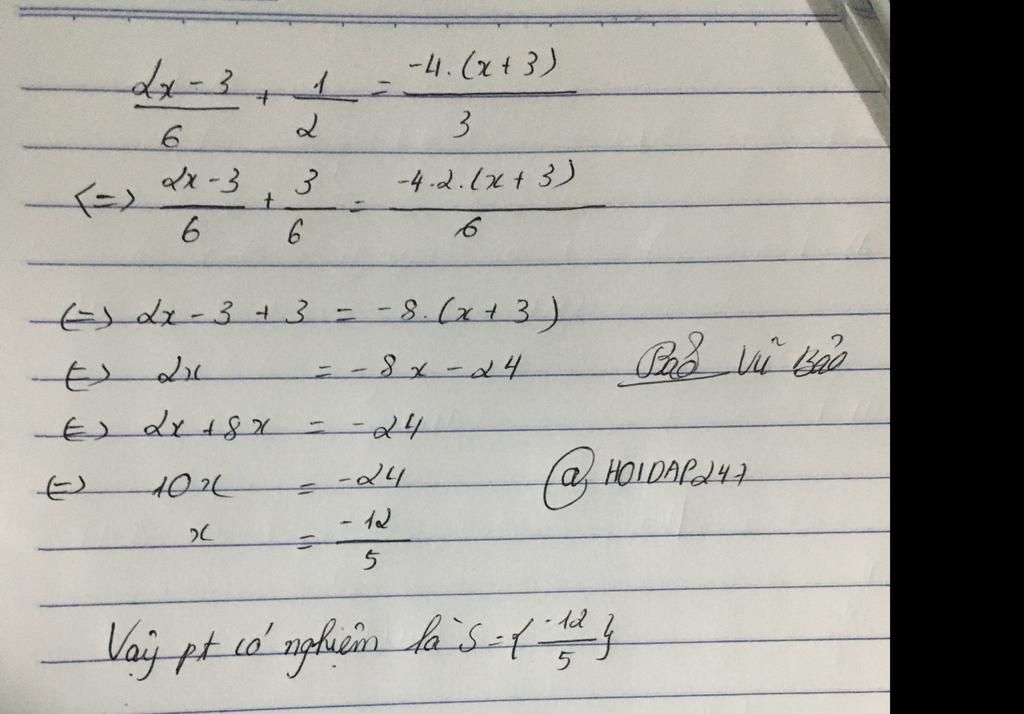 (2x - 3)/6 + 1/2 = (-4.(x + 3))/3
<=> (2x - 3)/6 + 3/6 = (-4.2.(x + 3))/6
<=> 2x - 3 + 3 = -8.(x + 3)
<=> 2x = -8x - 24
Vũ Bảo
<=> 2x + 8x = -24
<=> 10x = -24
@HOIDAP247
x = -12/5
Vậy pt có nghiệm là S = {-12/5}